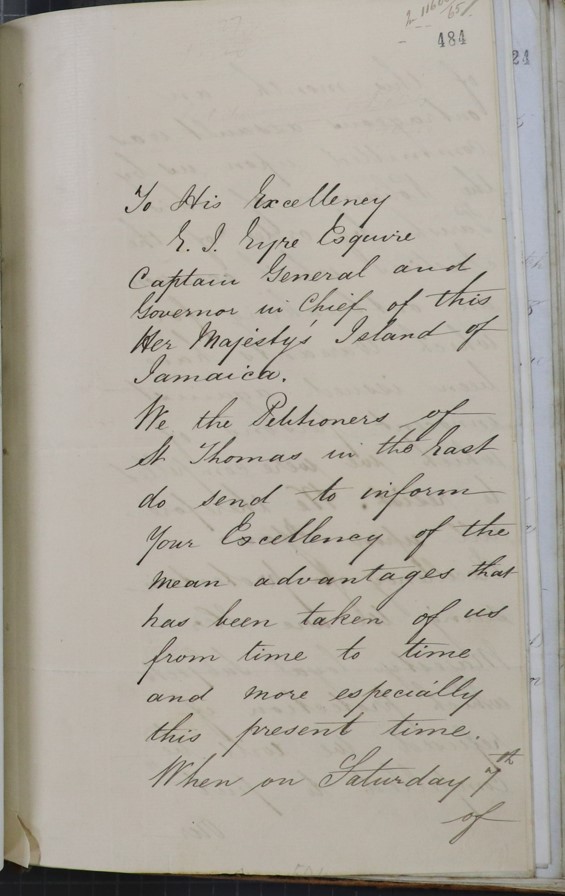 484
24
To His Excellency
E. J. Eyre Esquire
Captain General and
Governor in Chief of this
Her Majesty's Island of
Jamaica.
We the Petitioners of
St Thomas in the East
do send to inform
Your Excellency of the
mean advantages that
has been taken of us
from time to time
and more especially
this present time.
When on Saturday 7th
of